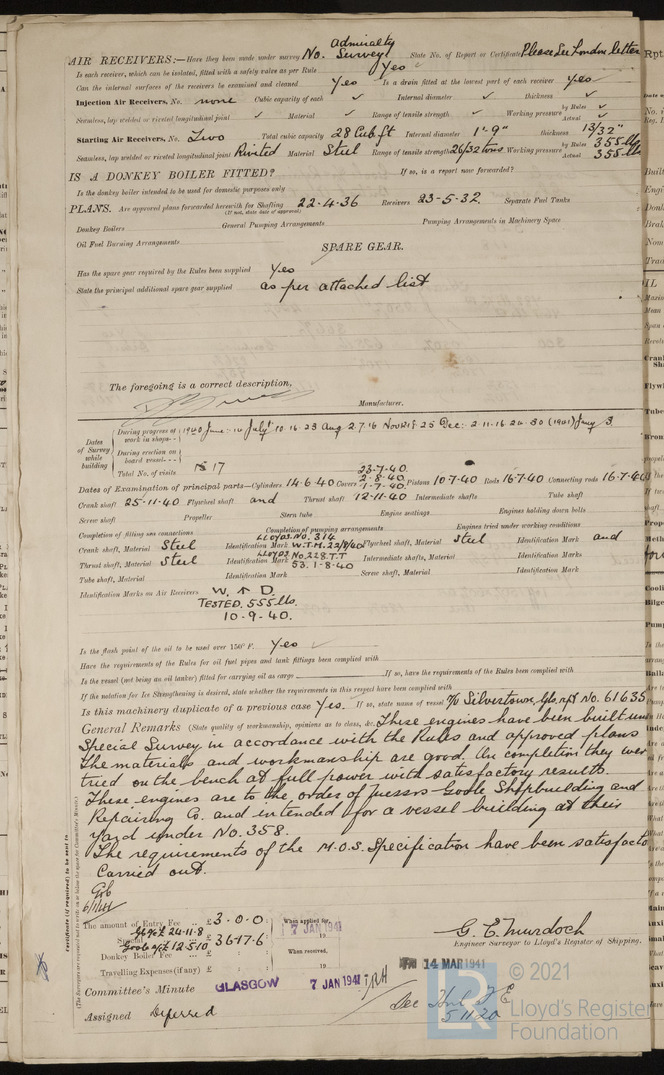 AIR RECEIVERS:—Have they been made under survey No. Admiralty Survey State No. of Report or Certificate Please see London letter
Is each receiver, which can be isolated, fitted with a safety valve as per Rule Yes ✓
Can the internal surfaces of the receivers be examined and cleaned Yes Is a drain fitted at the lowest part of each receiver Yes ✓
Injection Air Receivers, No. none Cubic capacity of each ✓ Internal diameter ✓ thickness ✓
Seamless, lap welded or riveted longitudinal joint ✓ Material ✓ Range of tensile strength ✓ Working pressure by Rules ✓ Actual ✓
Starting Air Receivers, No. Two Total cubic capacity 28 Cub ft Internal diameter 1'-9" thickness 13/32"
Seamless, lap welded or riveted longitudinal joint Riveted Material Steel Range of tensile strength 26/32 tons Working pressure by Rules 355 lbs Actual 355 lbs
IS A DONKEY BOILER FITTED? If so, is a report now forwarded?
Is the donkey boiler intended to be used for domestic purposes only
PLANS. Are approved plans forwarded herewith for Shafting 22-4-36 Receivers 23-5-32. Separate Fuel Tanks
(If not, state date of approval)
Donkey Boilers General Pumping Arrangements Pumping Arrangements in Machinery Space
Oil Fuel Burning Arrangements
SPARE GEAR.
Has the spare gear required by the Rules been supplied Yes
State the principal additional spare gear supplied as per attached list
The foregoing is a correct description,
Manufacturer.
Dates of Survey while building
During progress of work in shops - - 1940 June 14 July 10.16.23 Aug 2.7.16 Nov 25 Dec: 2.11.16.24.30 (1941) Jany 3.
During erection on board vessel - - -
Total No. of visits 17
23-7-40.
Dates of Examination of principal parts—Cylinders 14-6-40 Covers 2-8-40 1-7-40. Pistons 10-7-40 Rods 16-7-40 Connecting rods 16-7-40
Crank shaft 25-11-40 Flywheel shaft and Thrust shaft 12-11-40 Intermediate shafts Tube shaft
Screw shaft Propeller Stern tube Engine seatings Engines holding down bolts
Completion of fitting sea connections Completion of pumping arrangements Engines tried under working conditions
Crank shaft, Material Steel Identification Mark LLOYDS No. 314 W.T.M. 22/11/40 Flywheel shaft, Material Steel Identification Mark and
Thrust shaft, Material Steel Identification Mark LLOYDS No. 228.T.T 53. 1-8-40 Intermediate shafts, Material Identification Marks
Tube shaft, Material Identification Mark Screw shaft, Material Identification Mark
Identification Marks on Air Receivers W. ↑ D.
TESTED. 555 lbs.
10-9-40.
Is the flash point of the oil to be used over 150° F. Yes ✓
Have the requirements of the Rules for oil fuel pipes and tank fittings been complied with
Is the vessel (not being an oil tanker) fitted for carrying oil as cargo If so, have the requirements of the Rules been complied with
If the notation for Ice Strengthening is desired, state whether the requirements in this respect have been complied with
Is this machinery duplicate of a previous case Yes. If so, state name of vessel M/V Silvertown, Gls. rpt No. 61635
General Remarks (State quality of workmanship, opinions as to class, &c. These engines have been built under
Special Survey in accordance with the Rules and approved plans
The materials and workmanship are good. On completion they were
tried on the bench at full power with satisfactory results.
These engines are to the order of Messrs Goole Shipbuilding and
Repairing Co. and intended for a vessel building at their
yard under No. 358.
The requirements of the M.O.S. Specification have been satisfacto
Carried out.
6/1/41
The amount of Entry Fee .. £ 3-0-0 When applied for,
Special £ 36-17-6 7 JAN 1941
Gls rpt 24-11-8
Goole rpt 12-5-10
Donkey Boiler Fee ... £ : : When received,
Travelling Expenses (if any) £ : : 19
G. E. Murdoch
Engineer Surveyor to Lloyd's Register of Shipping.
Committee's Minute GLASGOW 7 JAN 1941
FRI 14 MAR 1941
Assigned Deferred
Certificate (if required) to be sent to
(The Surveyors are requested not to write on or below the space for Committee's Minute.)
© 2021
LR
Lloyd's Register
Foundation